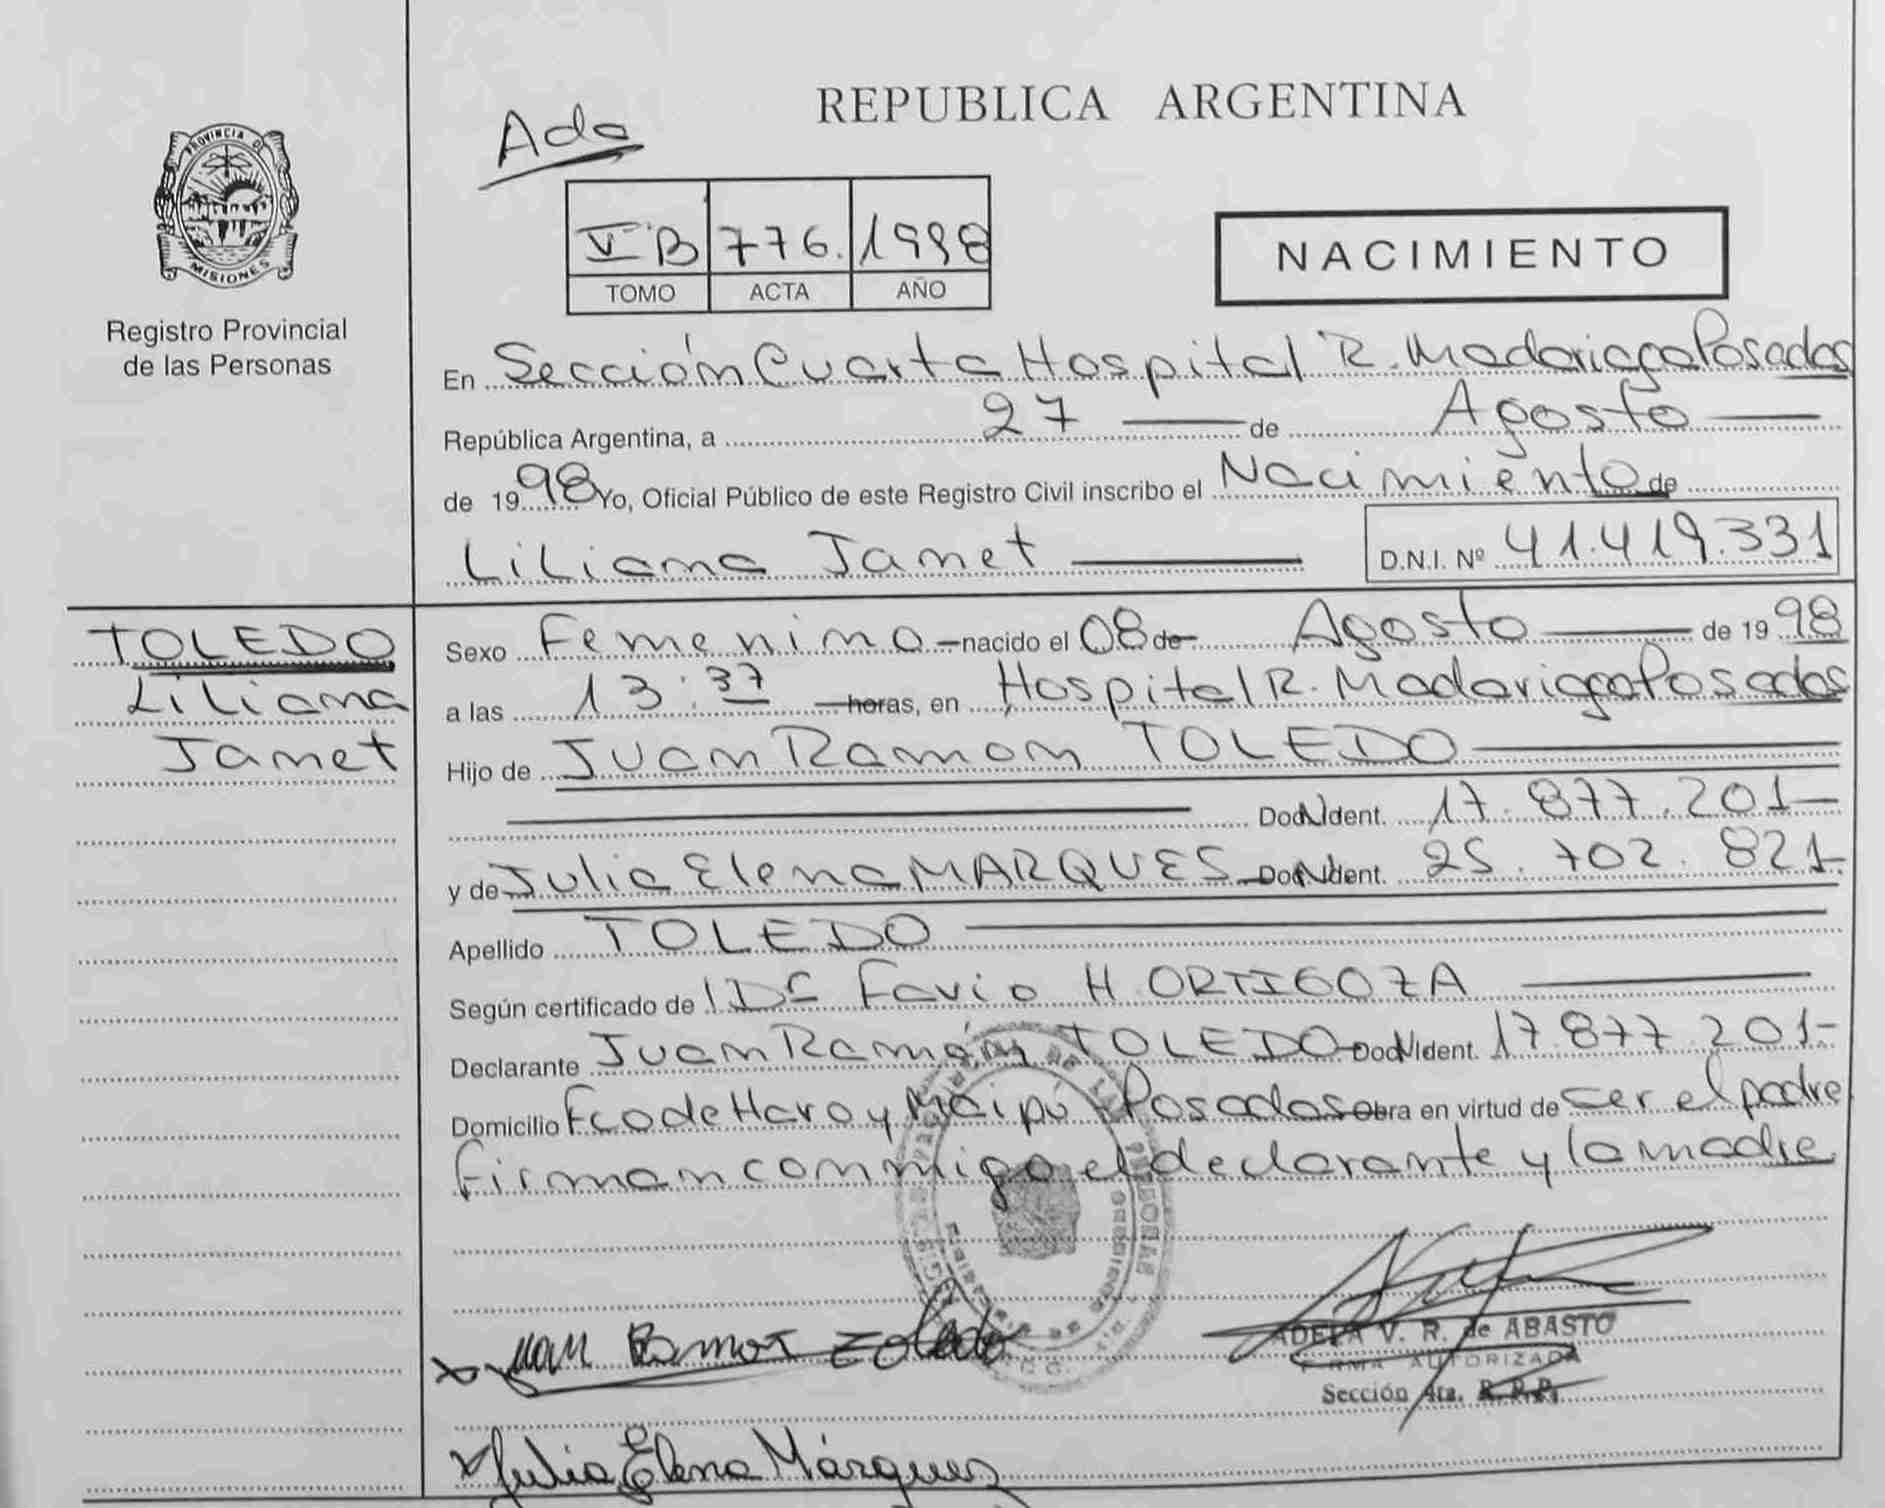 REPUBLICA ARGENTINA
Ada
PROVINCIA DE
MISIONES
Registro Provincial
de las Personas
V B 776. 1998
TOMO ACTA AÑO
NACIMIENTO
En Sección Cuarta Hospital R. Madariaga Posadas
República Argentina, a 27 de Agosto
de 1998 Yo, Oficial Público de este Registro Civil inscribo el Nacimiento de
Liliana Janet D.N.I. Nº 41.419.331
TOLEDO
Liliana
Janet
Sexo Femenino nacido el 08 de Agosto de 1998
a las 13:37 horas, en Hospital R. Madariaga Posadas
Hijo de Juan Ramon TOLEDO
Ident. 17.877.201
y de Julia Elena MARQUES Ident. 25.702.821
Apellido TOLEDO
Según certificado de Dr Favio H ORTIGOZA
Declarante Juan Ramón TOLEDO Ident. 17.877.201
Domicilio Fco de Haro y Maipú Posadas Obra en virtud de ser el padre
firman conmigo el declarante y la madre
Juan Ramon Toledo
ADELA V. R. de ABASTO
FIRMA AUTORIZADA
Sección 4ta. R.P.P.
Julia Elena Márquez